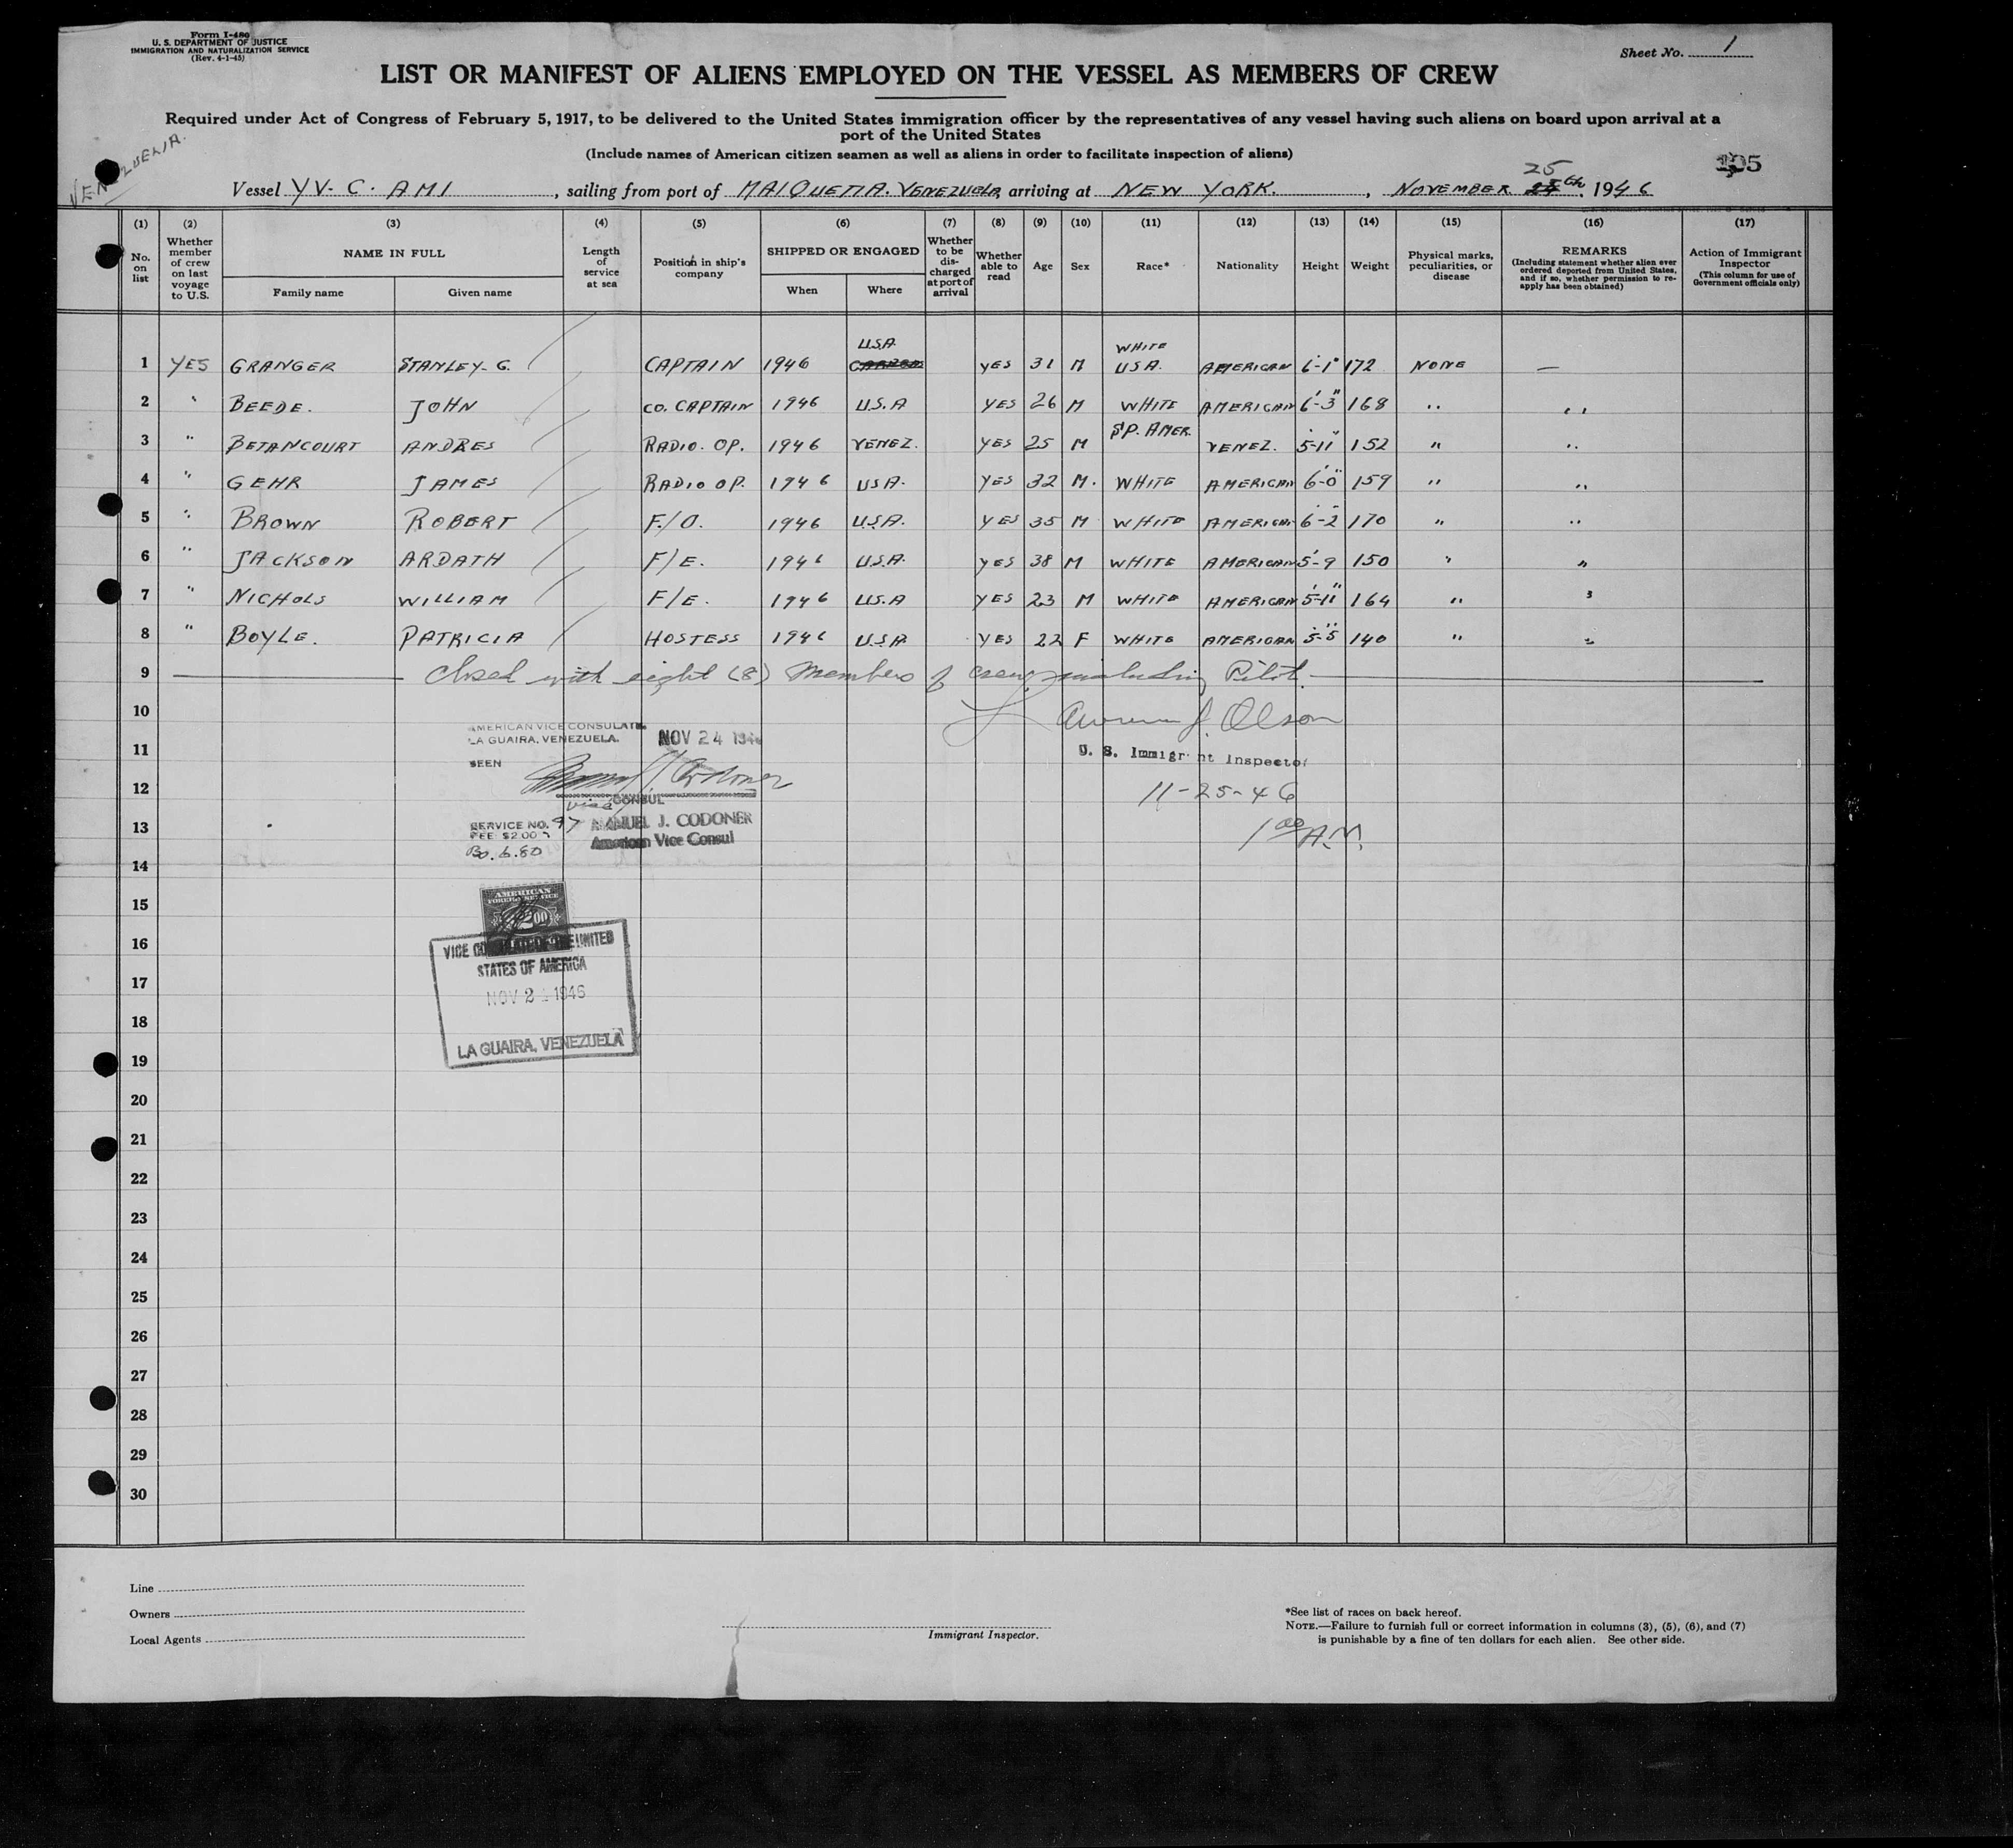 Form I-480
U. S. DEPARTMENT OF JUSTICE
IMMIGRATION AND NATURALIZATION SERVICE
(Rev. 4-1-45)
Sheet No. 1
LIST OR MANIFEST OF ALIENS EMPLOYED ON THE VESSEL AS MEMBERS OF CREW
Required under Act of Congress of February 5, 1917, to be delivered to the United States immigration officer by the representatives of any vessel having such aliens on board upon arrival at a
port of the United States
(Include names of American citizen seamen as well as aliens in order to facilitate inspection of aliens)
VENEZUELA.
Vessel YV- C. AMI, sailing from port of MAIQUETIA. VENEZUELA, arriving at NEW YORK., NOVEMBER 25 th. 1946
(1) (2) (3) (4) (5) (6) (7) (8) (9) (10) (11) (12) (13) (14) (15) (16) (17)
No. on list
Whether member of crew on last voyage to U.S.
NAME IN FULL
Family name
Given name
Length of service at sea
Position in ship's company
SHIPPED OR ENGAGED
When
Where
Whether to be discharged at port of arrival
Whether able to read
Age
Sex
Race*
Nationality
Height
Weight
Physical marks, peculiarities, or disease
REMARKS
(Including statement whether alien ever ordered deported from United States, and if so, whether permission to re-apply has been obtained)
Action of Immigrant Inspector
(This column for use of Government officials only)
1 YES GRANGER STANLEY-G. CAPTAIN 1946 U.S.A. YES 31 M WHITE U.S.A. AMERICAN 6'-1" 172 NONE —
2 " BEEDE. JOHN CO. CAPTAIN 1946 U.S.A YES 26 M WHITE AMERICAN 6'-3" 168 " "
3 " BETANCOURT ANDRES RADIO. OP. 1946 VENEZ. YES 25 M SP. AMER. VENEZ. 5'-11" 152 " "
4 " GEHR JAMES RADIO OP. 1946 USA. YES 32 M. WHITE AMERICAN 6'-0" 159 " "
5 " BROWN ROBERT F./O. 1946 U.S.A. YES 35 M WHITE AMERICAN 6'-2" 170 " "
6 " JACKSON ARDATH F/E. 1946 U.S.A. YES 38 M WHITE AMERICAN 5'-9 150 " "
7 " NICHOLS WILLIAM F/E. 1946 U.S.A YES 23 M WHITE AMERICAN 5'-11" 164 " "
8 " BOYLE. PATRICIA HOSTESS 1946 U.S.A YES 22 F WHITE AMERICAN 5'-5" 140 " "
9 Closed with eight (8) Members of crew, including Pilot.
10 Lawrence J. Olson
AMERICAN VICE CONSULATE
LA GUAIRA, VENEZUELA. NOV 24 1946
11 U. S. Immigrant Inspector
SEEN
12 11-25-46
CONSUL
13 SERVICE NO. 97 MANUEL J. CODONER
1 00 A.M.
FEE $2.00
American Vice Consul
Bo. 6.80
14
15
AMERICAN
FOREIGN SERVICE
$2.00
16
VICE CONSULATE OF THE UNITED
STATES OF AMERICA
17
NOV 2 1946
18
LA GUAIRA, VENEZUELA
19
20
21
22
23
24
25
26
27
28
29
30
Line
Owners
Local Agents
Immigrant Inspector.
*See list of races on back hereof.
NOTE.—Failure to furnish full or correct information in columns (3), (5), (6), and (7)
is punishable by a fine of ten dollars for each alien. See other side.